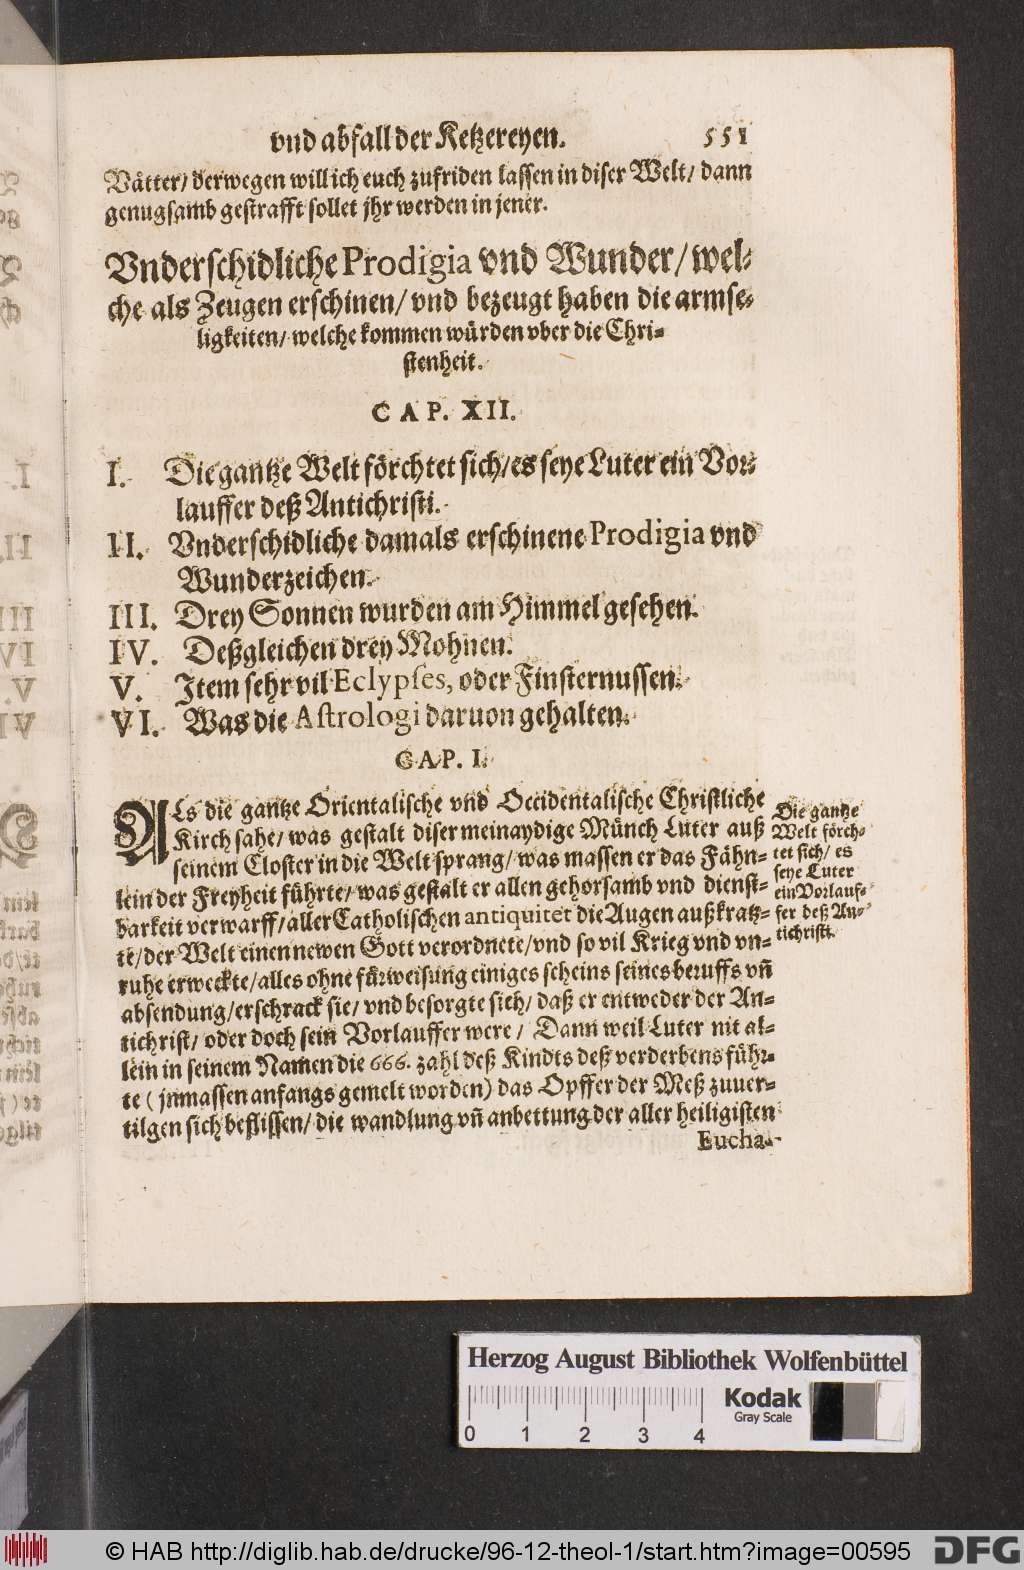 vnd abfall der Ketzereyen. 551
Vätter/ derwegen will ich euch zufriden lassen in diser Welt/ dann
genugsamb gestrafft sollet jhr werden in jener.
Vnderschidliche Prodigia vnd Wunder/ wel-
che als Zeugen erschinen/ vnd bezeugt haben die armse-
ligkeiten/ welche kommen würden vber die Chri-
stenheit.
CAP. XII.
I. Die gantze Welt förchtet sich/ es seye Luter ein Vor-
lauffer deß Antichristi.
II. Vnderschidliche damals erschinene Prodigia vnd
Wunderzeichen.
III. Drey Sonnen wurden am Himmel gesehen.
IV. Deßgleichen drey Mohnen.
V. Jtem sehr vil Eclypses, oder Finsternussen.
VI. Was die Astrologi daruon gehalten.
CAP. I.
ALs die gantze Orientalische vnd Occidentalische Christliche
Kirch sahe/ was gestalt diser meinaydige Münch Luter auß
seinem Closter in die Welt sprang/ was massen er das Fähn-
lein der Freyheit führte/ was gestalt er allen gehorsamb vnd dienst-
barkeit verwarff/ aller Catholischen antiquitet die Augen außkratz-
te/ der Welt einen newen Gott verordnete/ vnd so vil Krieg vnd vn-
ruhe erweckte/ alles ohne fürweisung einiges scheins seines beruffs vñ
absendung/ erschrack sie/ vnd besorgte sich/ daß er entweder der An-
tichrist/ oder doch sein Vorlauffer were/ Dann weil Luter nit al-
lein in seinem Namen die 666. zahl deß Kindts deß verderbens führ-
te ( jnmassen anfangs gemelt worden) das Opffer der Meß zuuer-
tilgen sich beflissen/ die wandlung vñ anbettung der aller heiligisten
Eucha-
Die gantze
Welt förch-
tet sich/ es
seye Luter
ein Vorlauf-
fer deß An-
tichristi.
Herzog August Bibliothek Wolfenbüttel
Kodak
Gray Scale
0 1 2 3 4
© HAB http://diglib.hab.de/drucke/96-12-theol-1/start.htm?image=00595
DFG